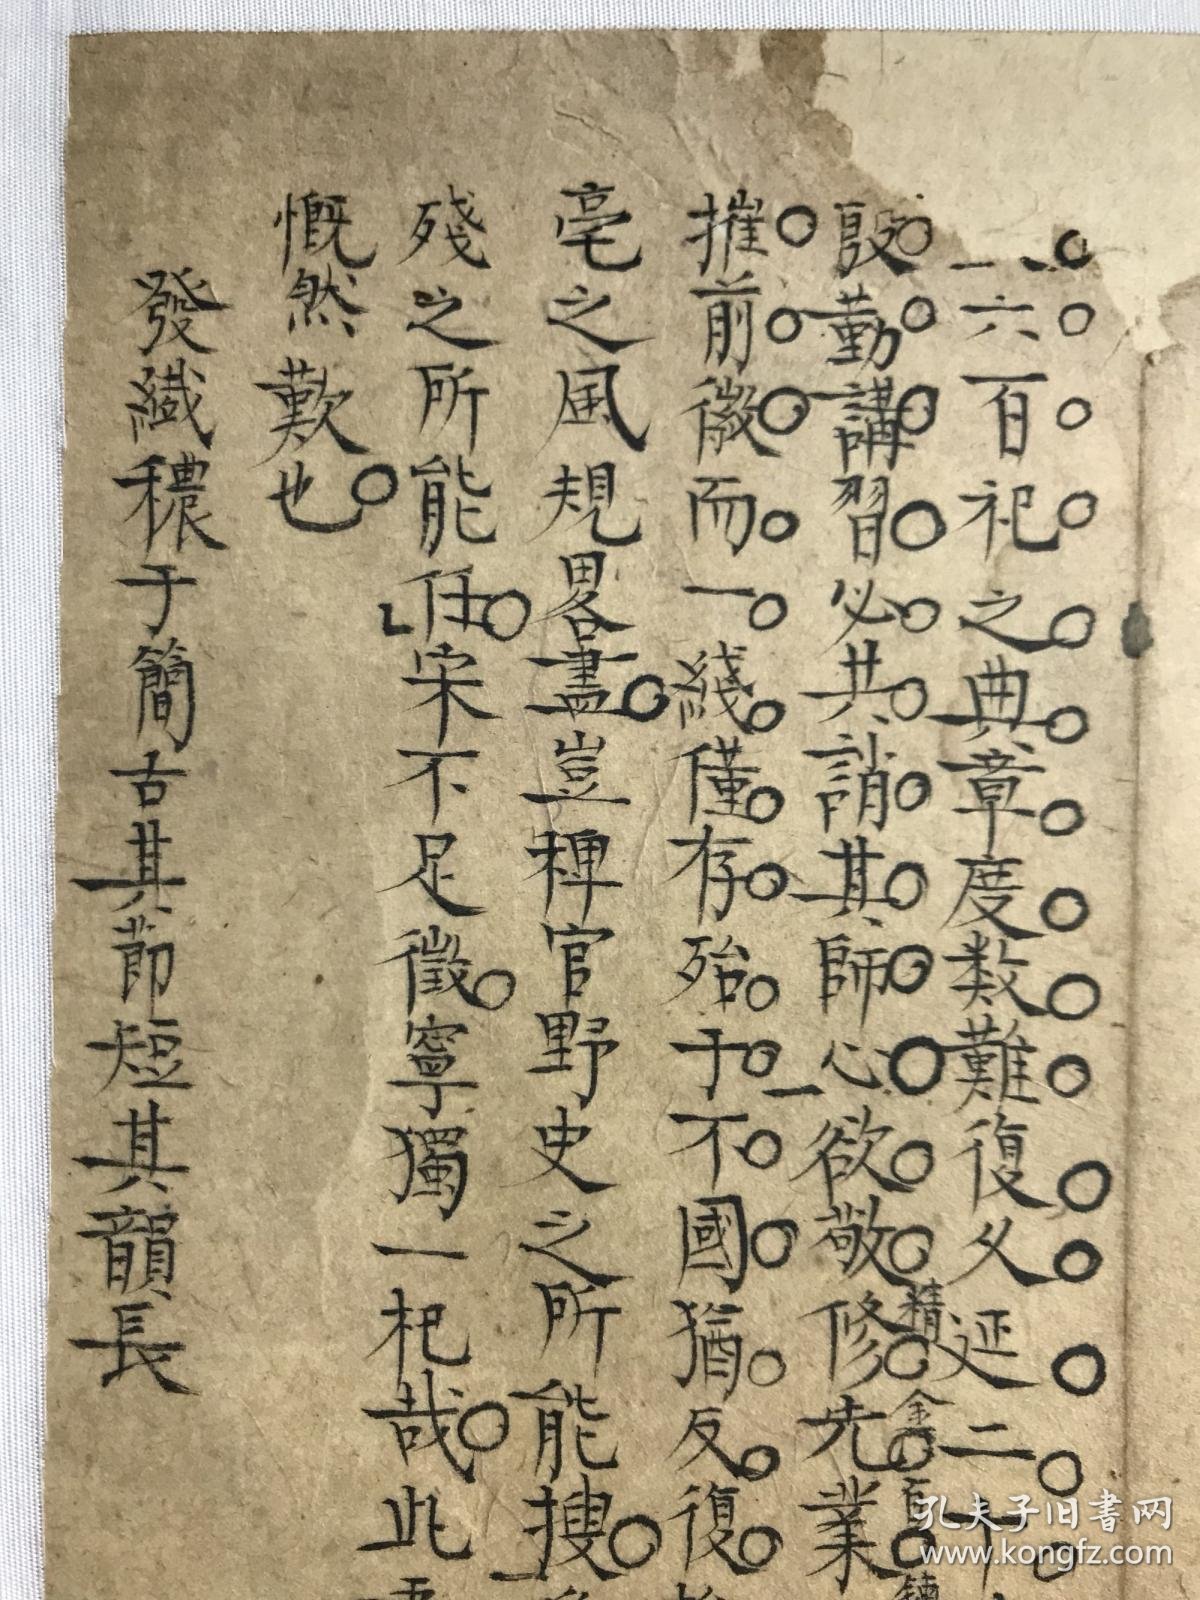 六百祀之典章度数難復久延二十
殷勤講習必共誚其師心欲敬修先業
精金百鍊
摧前徽而一綫僅存殆于不國猶反復
亳之風規畧盡豈稗官野史之所能搜
殘之所能任宋不足徵寧獨一杞哉此吾
慨然歎也
發纎穠于簡古其節短其韻長
孔夫子旧書网
www.kongfz.com